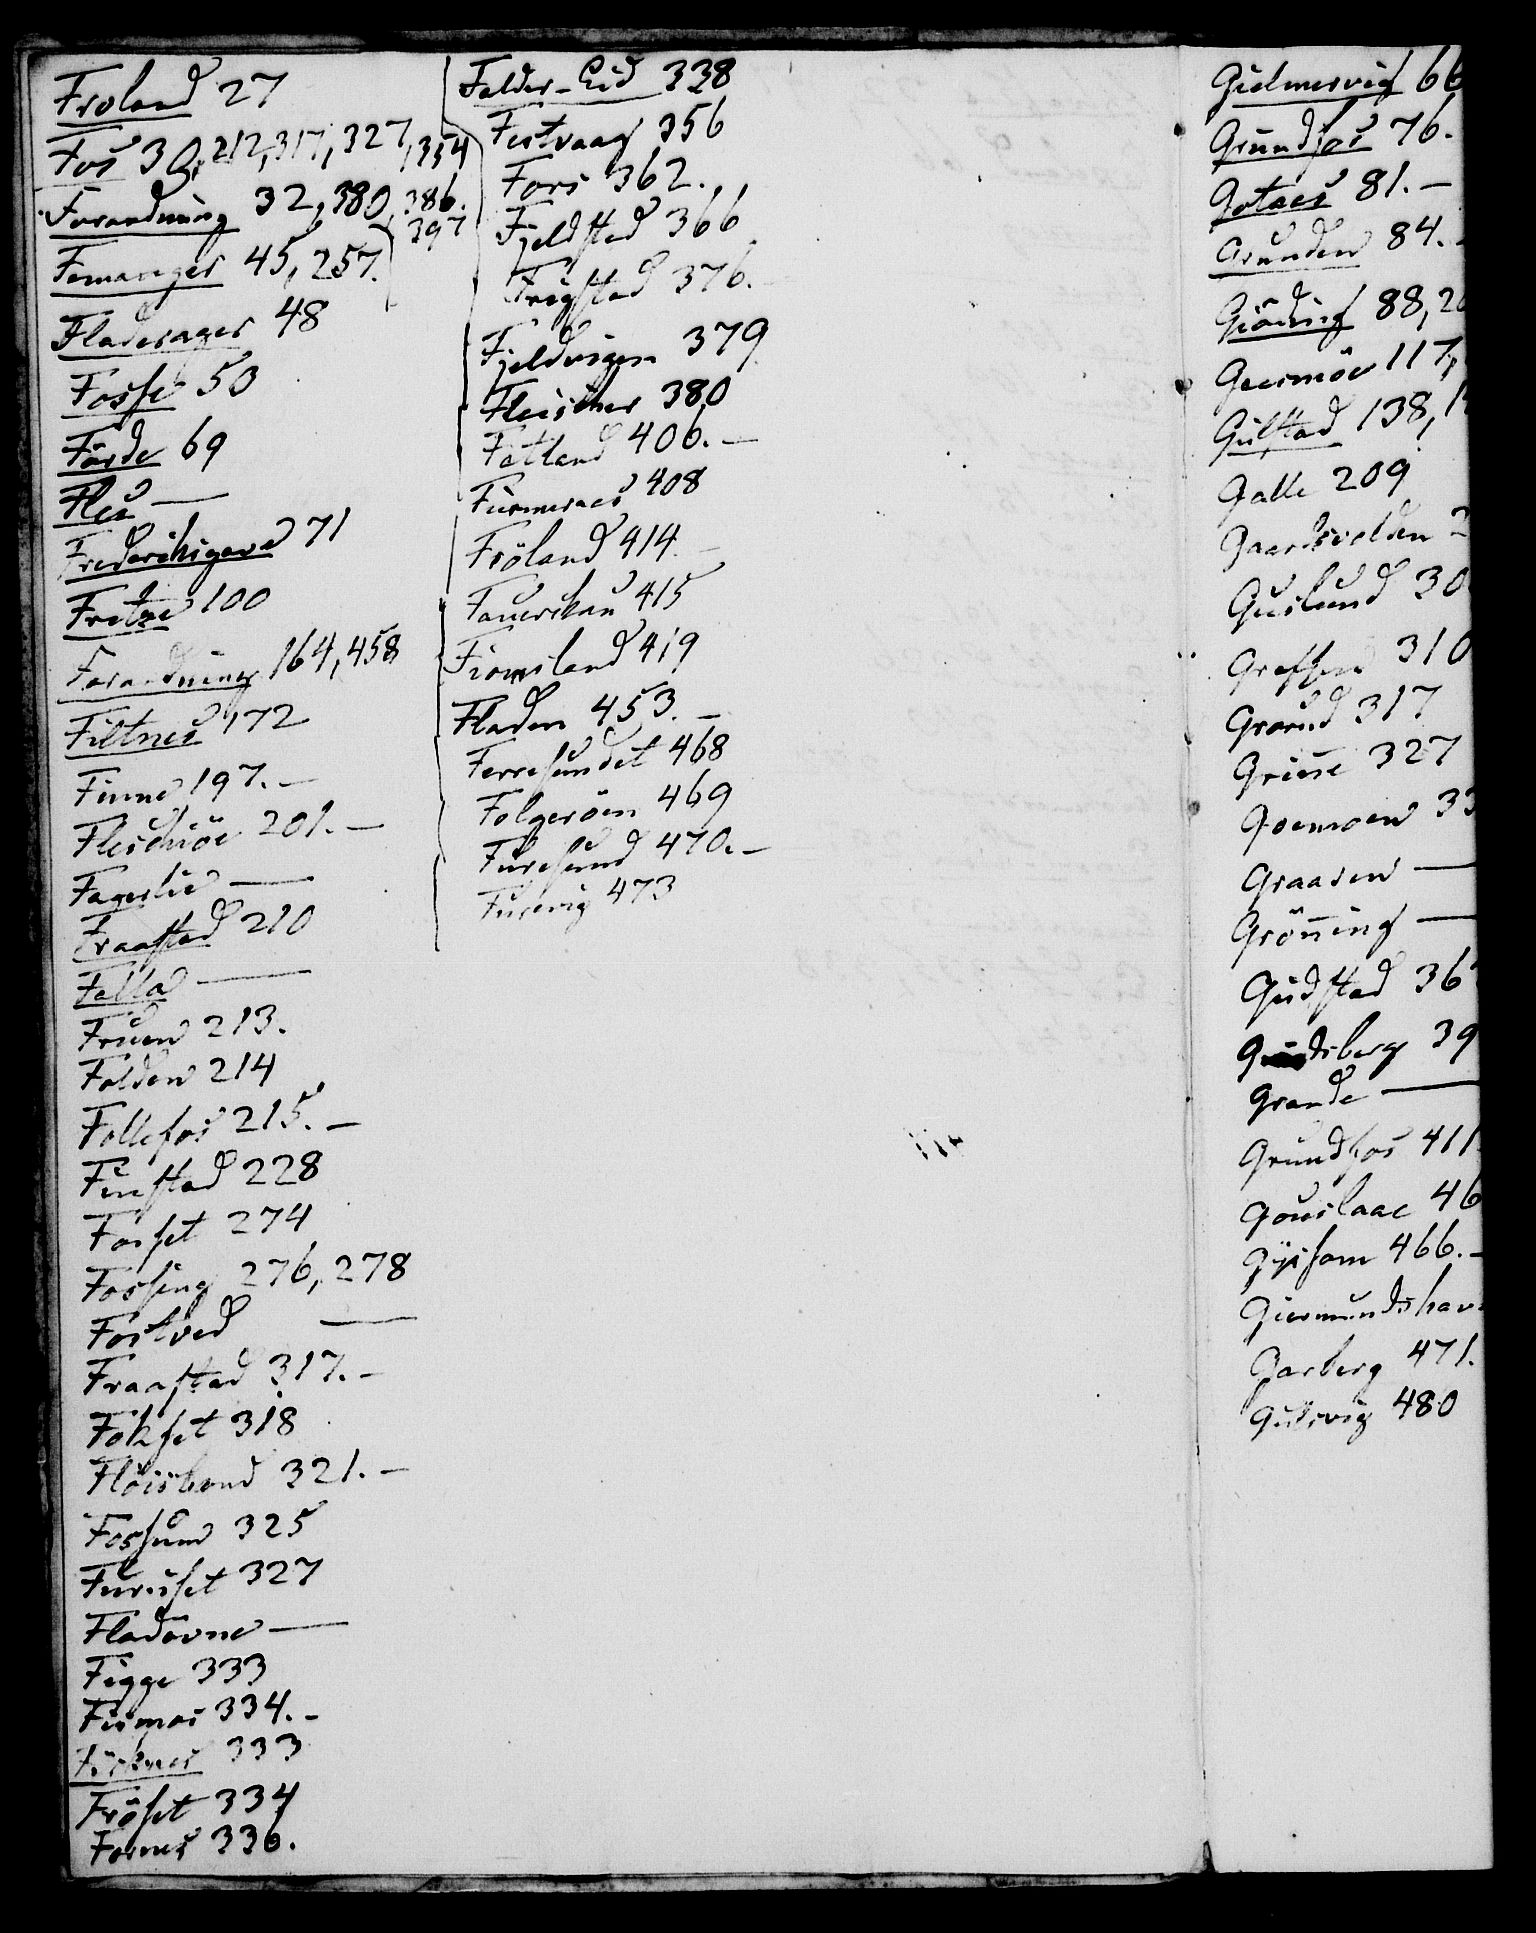 Froland 27
Fos 30, 212, 317, 327, 354
Forandring 32, 380, 386. 397
Femanger 45, 257.
Fladerager 48
Fosse 50
Förde 69
Flez —
Frederiksgave 71
Fretze 100
Forandring 164, 458
Filtnes 172
Finne 197. –
Fleschiöe 201. –
Fagerlie —
Fraastad 210
Fella —
Fruen 213.
Folden 214
Follefos 215. –
Finstad 228
Fosset 274
Fossing 276, 278
Fostved —
Fraastad 317. –
Fokset 318
Flöisbond 321. –
Fossum 325
Furuset 327
Fladovne —
Figge 333
Fismoi 334. –
Fisknes 333
Fröset 334
Fornes 336.
Folder-Eid 338
Festvaag 356
Fors 362.
Fjeldstad 366
Frigstad 376.
Fjeldvigen 379
Fleischer 380
Fatland 406. –
Furneraes 408
Fröland 414 –
Fauerskau 415
Fiomsland 419
Fladen 453. –
Ferresundet 468
Folgeröen 469
Furesund 470. –
Furevig 473
Gielmervig 66
Grundfos 76.
Gotaas 81. –
Grunden 84. –
Giöding 88, 2
Geermöe 117,
Gulstad 138, 1
Galle 209
Gaardsvolden 2
Guslund 30
Grefsen 310
Grorud 317
Griese 327
Goemoen 33
Graasen —
Grönning —
Gudstad 36
Gudsberg 39
Grande —
Grundfos 411
Gouslaae 46
Gjisham 466. –
Giermundshav
Garberg 471.
Gulsvig 480